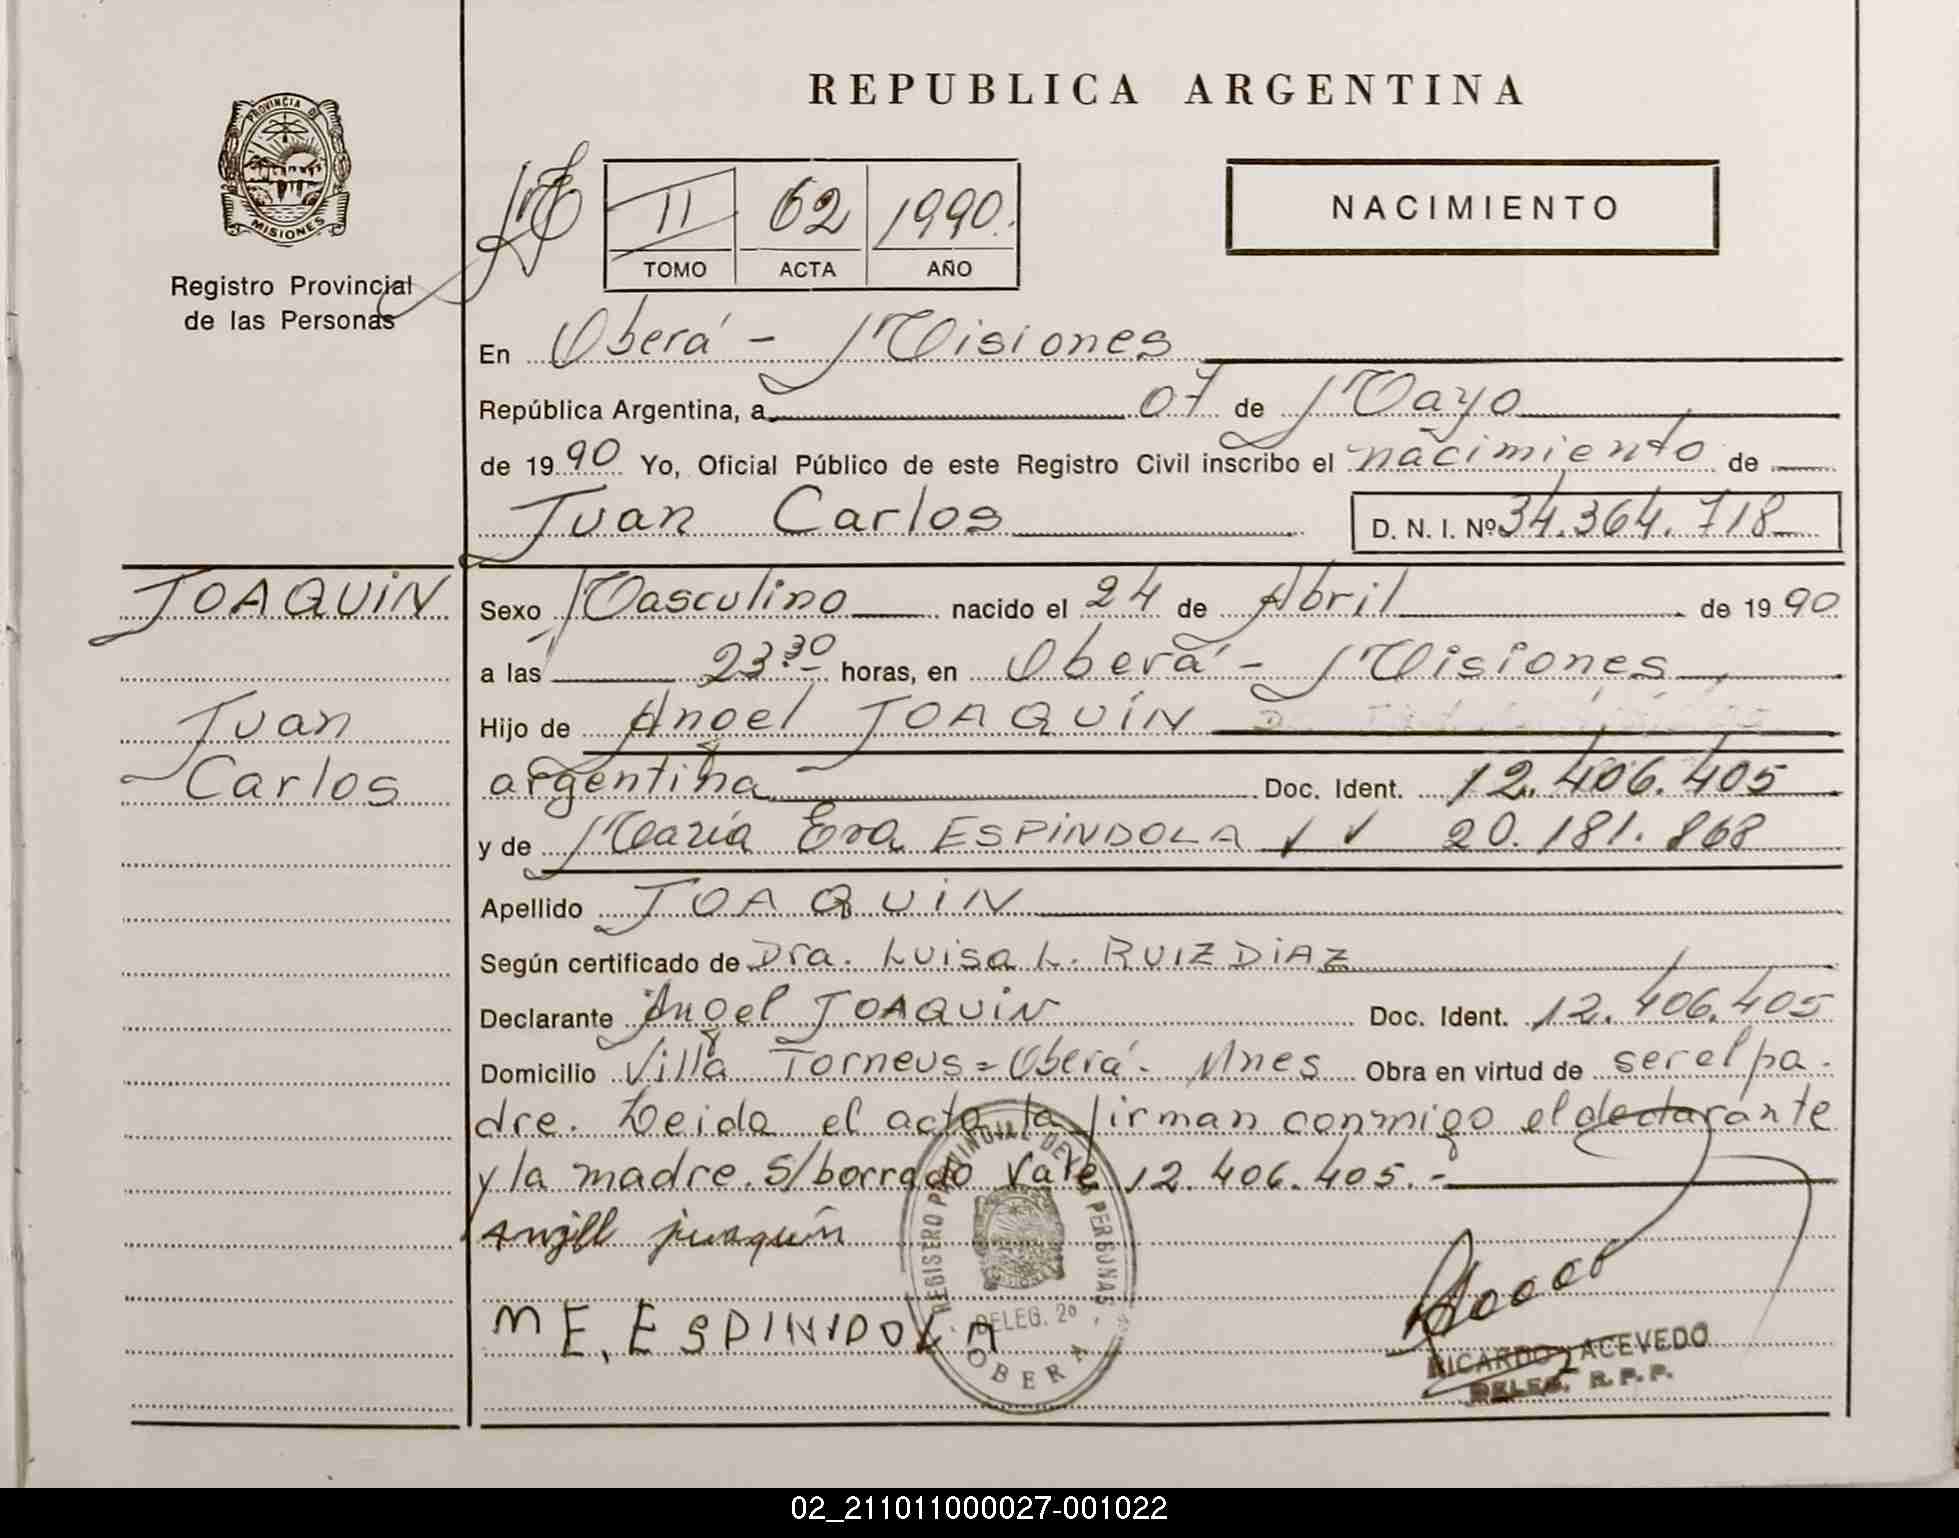 REPUBLICA ARGENTINA
PROVINCIA DE
MISIONES
Registro Provincial
de las Personas
II 62 1990.
TOMO ACTA AÑO
NACIMIENTO
En Oberá - Misiones
República Argentina, a 07 de Mayo
de 1990 Yo, Oficial Público de este Registro Civil inscribo el nacimiento de
Juan Carlos D. N. I. Nº 34.364.718
JOAQUIN
Juan
Carlos
Sexo Masculino nacido el 24 de Abril de 1990
a las 23.30 horas, en Oberá - Misiones
Hijo de Angel JOAQUIN
argentina Doc. Ident. 12.406.405
y de María Eva ESPINDOLA 20.181.868
Apellido JOAQUIN
Según certificado de Dra. Luisa L. RUIZ DIAZ
Declarante Angel JOAQUIN Doc. Ident. 12.406.405
Domicilio Villa Torneus = Oberá - Mnes Obra en virtud de ser el pa-
dre. Leida el acta la firman conmigo el declarante
y la madre. S/borrado Vale 12.406.405.-
Angill juaquin
ME. ESPINIDOLA
REGISTRO PROVINCIAL DE LAS PERSONAS
DELEG. 2º
OBERA
RICARDO ACEVEDO
DELEG. R. P. P.
02_211011000027-001022